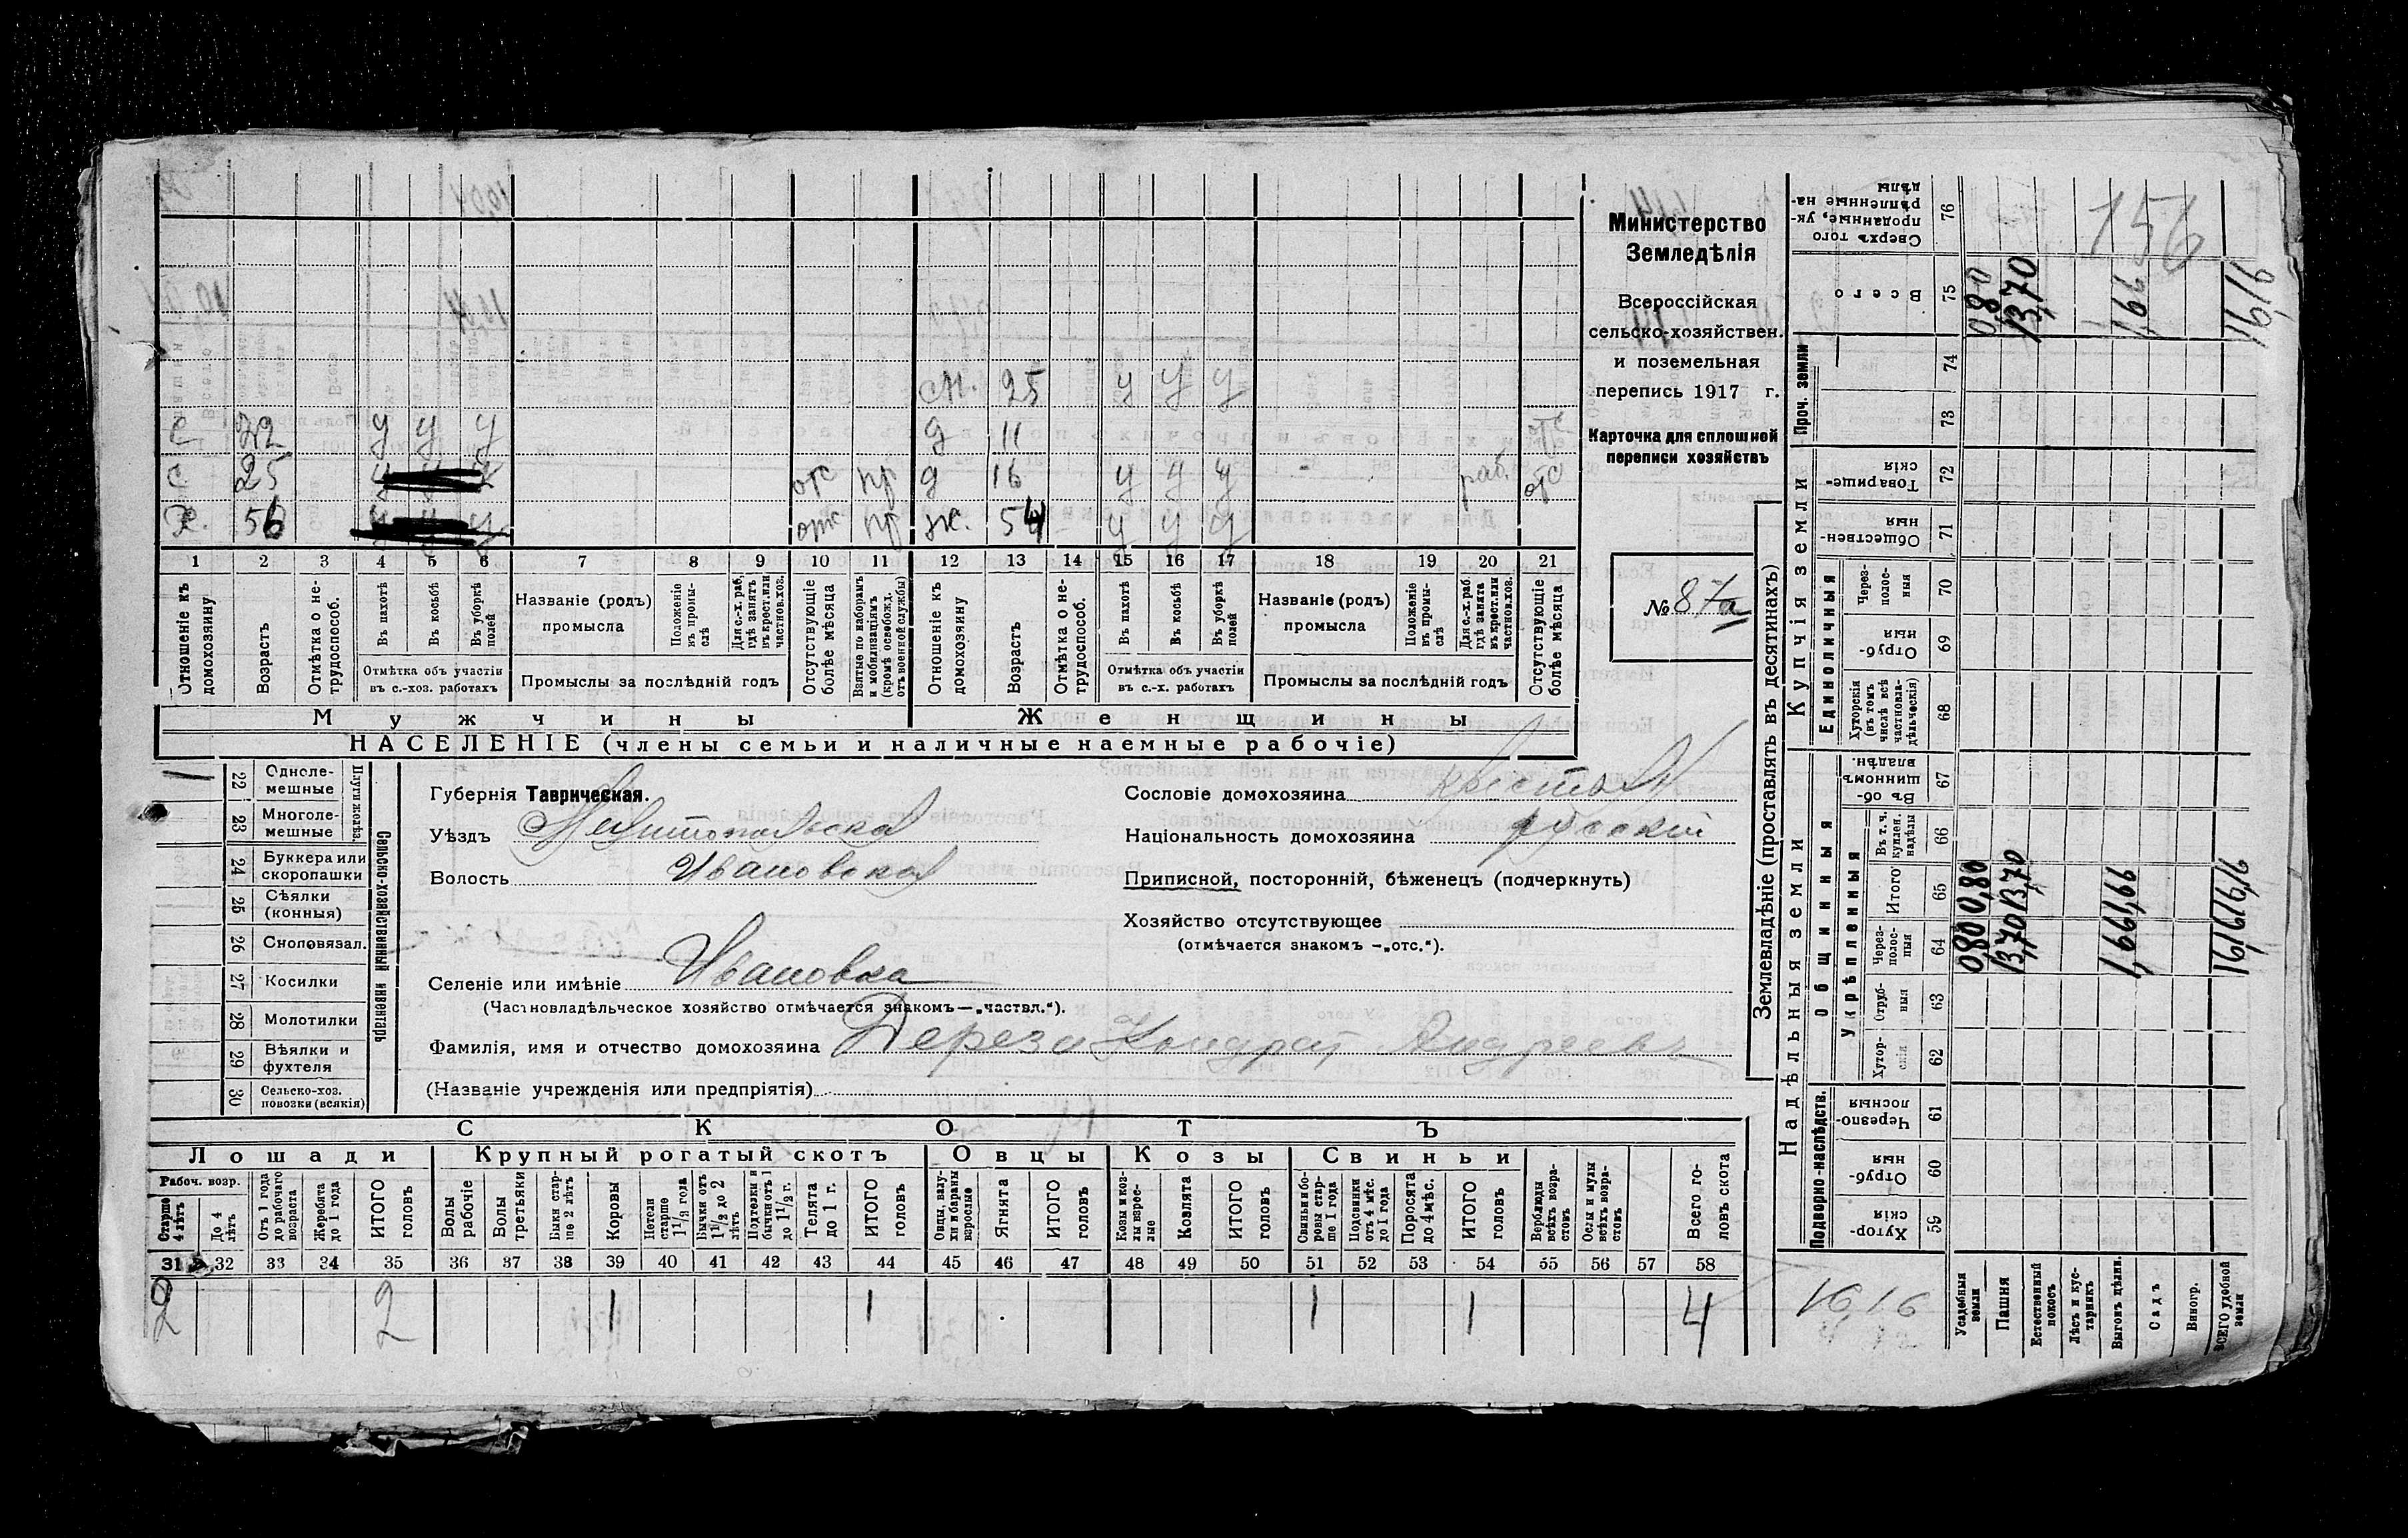 Министерство
Земледѣлія
Всероссійская
сельско-хозяйствен.
и поземельная
перепись 1917 г.
Карточка для сплошной
переписи хозяйствъ
№ 87а
156
см. 25 у у у
с 22 у у у д 11 отс
с 25 у у у отс пр д 16 у у у - раб. отс
х. 56 у у у отс. пр ж. 54 у у у
1 2 3 4 5 6 7 8 9 10 11 12 13 14 15 16 17 18 19 20 21
Отношеніе къ домохозяину
Возрасть
Отмѣтка о не-трудоспособ.
Въ пахотѣ
Въ косьбѣ
Въ уборкѣ полей
Отмѣтка объ участіи
въ с.-хоз. работахъ
Названіе (родъ)
промысла
Положеніе въ промы-слѣ
Для с.-х. раб. гдѣ занятъ въ крест. или частнов. хоз.
Промыслы за послѣдній годъ
Отсутствующіе болѣе мѣсяца
Взятые по наборамъ и мобилизаціямъ (кромѣ освобожд. отъ военной службы)
Отношеніе къ домохозяину
Возрасть
Отмѣтка о не-трудоспособ.
Въ пахотѣ
Въ косьбѣ
Въ уборкѣ полей
Отмѣтка объ участіи
въ с.-х. работахъ
Названіе (родъ)
промысла
Положеніе въ промы-слѣ
Для с.-х. раб. гдѣ занята въ крест. или частнов. хоз.
Промыслы за послѣдній годъ
Отсутствующіе болѣе мѣсяца
Мужчины Женщины
НАСЕЛЕНІЕ (члены семьи и наличные наемные рабочіе)
1 22 Одноле-мешные
23 Многоле-мешные
Плуги желѣз.
24 Буккера или скоропашки
25 Сѣялки (конныя)
26 Сноповязал.
27 Косилки
28 Молотилки
29 Вѣялки и фухтеля
30 Сельско-хоз. повозки (всякія)
Сельско-хозяйственный инвентарь
Губернія Таврическая.
Уѣздъ Мелитопольскій
Волость Ивановская
Селеніе или имѣніе Ивановка
(Частновладѣльческое хозяйство отмѣчается знакомъ—„частвл.“).
Фамилія, имя и отчество домохозяина Дереза Кондрат Андреевъ
(Названіе учрежденія или предпріятія)
Сословіе домохозяина крестьян
Національность домохозяина русскій
Приписной, посторонній, бѣженецъ (подчеркнуть)
Хозяйство отсутствующее
(отмѣчается знакомъ —„отс.“).
СКОТЪ
Лошади Крупный рогатый скотъ Овцы Козы Свиньи
Рабоч. возр.
Старше 4 лѣтъ
До 4 лѣтъ
Отъ 1 года до рабочаго возраста
Жеребята до 1 года
ИТОГО головъ
Волы рабочіе
Волы третьяки
Быки стар-ше 2 лѣтъ
Коровы
Нетели старше 1 1/2 года
Бычки отъ 1 1/2 до 2 лѣтъ
Подтелки и бычки отъ 1 до 1 1/2 г.
Телята до 1 г.
ИТОГО головъ
Овцы, валу-хи и бараны взрослые
Ягнята
ИТОГО головъ
Козы и коз-лы взрос-лые
Козлята
ИТОГО головъ
Свиньи и бо-ровы стар-ше 1 года
Подсвинки отъ 4 мѣс. до 1 года
Поросята до 4 мѣс.
ИТОГО головъ
Верблюды всѣхъ возра-стовъ
Ослы и мулы всѣхъ возра-стовъ
Всего го-ловъ скота
31 32 33 34 35 36 37 38 39 40 41 42 43 44 45 46 47 48 49 50 51 52 53 54 55 56 57 58
2 2 1 1 1 1 4
Землевладѣніе (проставлять въ десятинахъ)
Надѣльныя земли
Купчія земли
Проч. земли
Подворно-наслѣдств.
Общинныя
Укрѣпленныя
Единоличныя
Хутор-скія 59
Отруб-ныя 60
Черезпо-лосныя 61
Хутор-скія 62
Отруб-ныя 63
Через-полос-ныя 64
Итого 65
Въ т. ч. куплен. надѣлы 66
Въ об-щинномъ владѣн. 67
Хуторскія (въ томъ числѣ всѣ частновла-дѣльческія) 68
Отруб-ныя 69
Через-полос-ныя 70
Обществен-ныя 71
Товарище-скія 72
73
74
Всего 75
Сверхъ того проданные, ук-рѣпленные на-дѣлы 76
Усадебныя земли 0,80 0,80 0,80
Пашня 13,70 13,70 13,70
Естественный покосъ
Лѣсъ и кус-тарникъ
Выгонъ цѣлин. 1,66 1,66 1,66
Садъ
Виногр.
ВСЕГО удобной земли 16,16 16,16 16,16
16,16